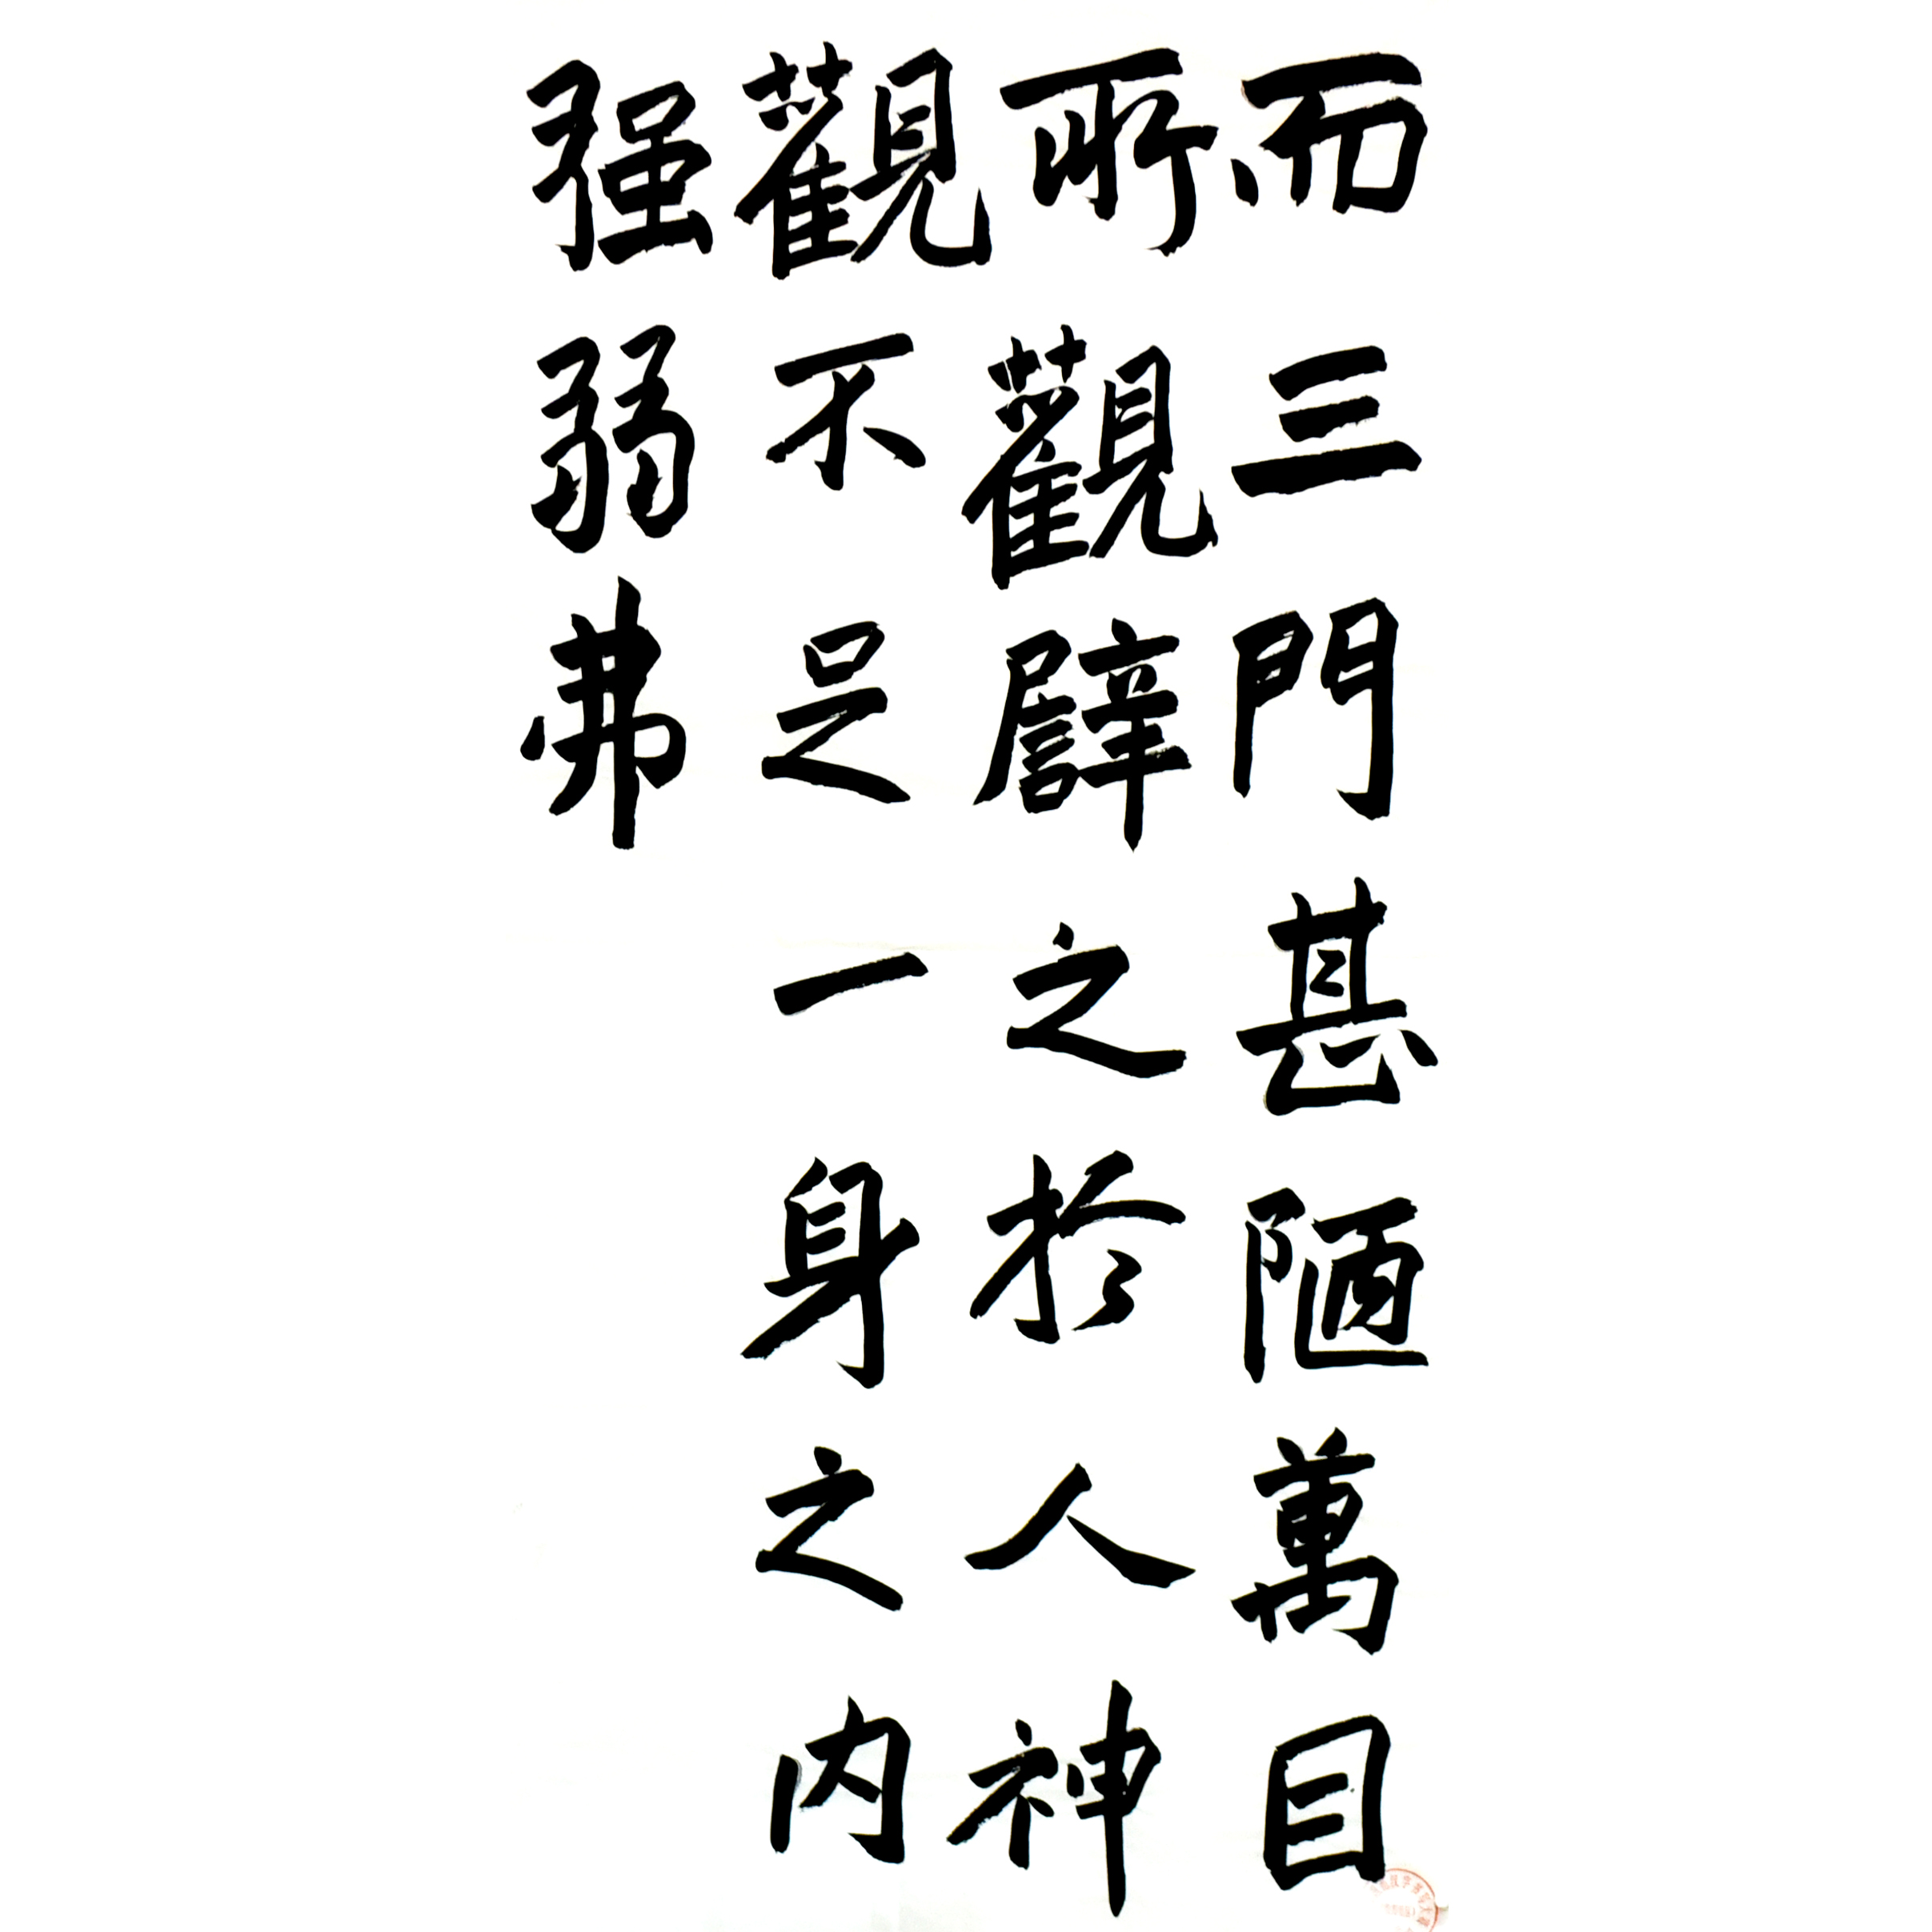 而三門甚陋萬目
所觀譬之於人神
觀不足一身之内
强弱弗